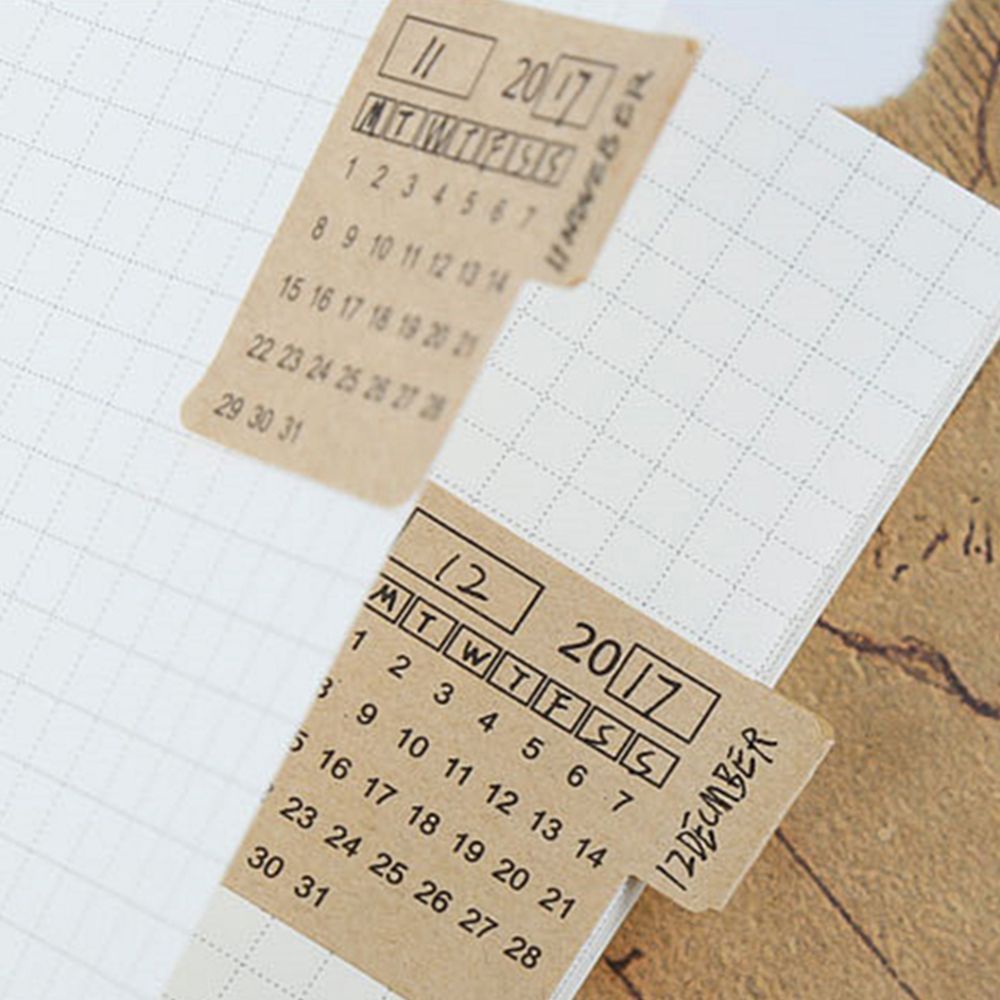 11 2017
M T W T F S S
1 2 3 4 5 6 7
8 9 10 11 12 13 14
15 16 17 18 19 20 21
22 23 24 25 26 27 28
29 30 31
11NOVEBER
12 2017
M T W T F S S
1 2 3 4 5 6 7
9 10 11 12 13 14
5 16 17 18 19 20 21
23 24 25 26 27 28
30 31
12DECMBER